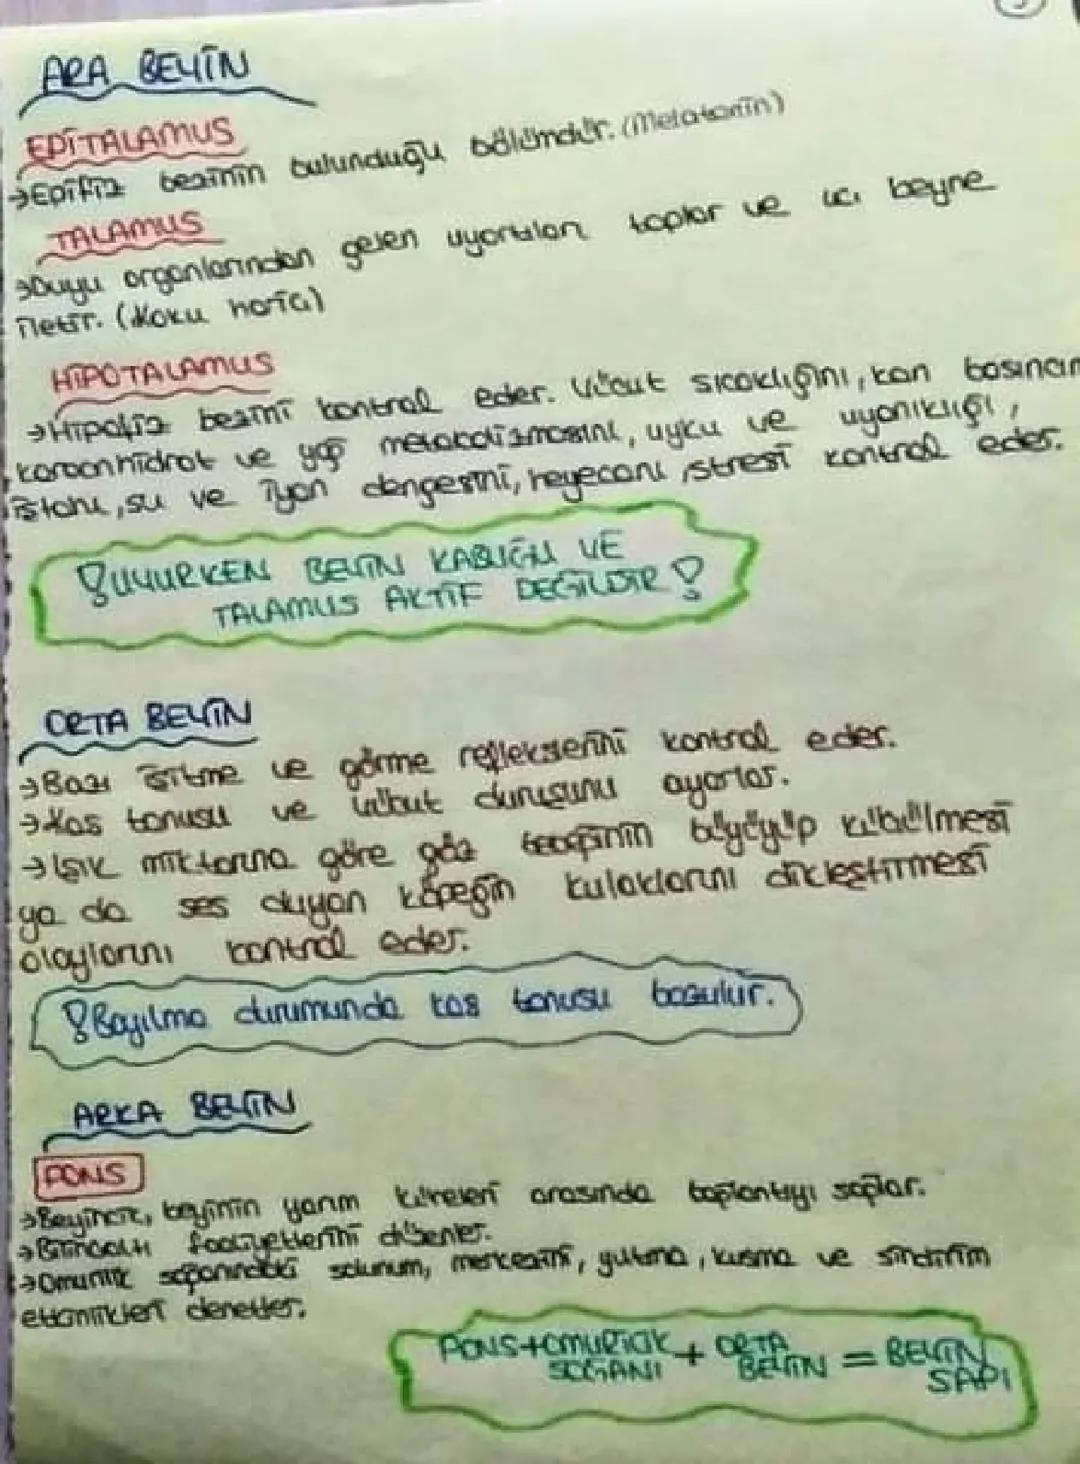 ARA BEYİN
EPİTALAMUS
→Epifiz bezinin bulunduğu bölümdür. (Melatonin)
TALAMUS
→Duyu organlarından gelen uyartıları toplar ve uç beyne
iletir. (Koku hariç)
HİPOTALAMUS
→Hipofiz bezini kontrol eder. Vücut sıcaklığını, kan basıncın
karbonhidrat ve yağ metabolizmasını, uyku ve uyanıklığı,
iştahı, su ve iyon dengesini, heyecanı, stresi kontrol eder.
! UYURKEN BEYİN KABUĞU VE
TALAMUS AKTİF DEĞİLDİR !
ORTA BEYİN
→Bazı işitme ve görme reflekslerini kontrol eder.
→Kas tonusu ve vücut duruşunu ayarlar.
→Işık miktarına göre göz bebeğinin büyüyüp küçülmesi
ya da ses duyan köpeğin kulaklarını dikleştirmesi
olaylarını kontrol eder.
! Bayılma durumunda kas tonusu bozulur.
ARKA BEYİN
PONS
→Beyincik, beyinin yarım küreleri arasında bağlantıyı sağlar.
→ faaliyetlerini düzenler.
→Omurilik soğanındaki solunum, merkezini, yutma, kusma ve sindirim
etkinlikleri denetler.
PONS+OMURİLİK SOĞANI + ORTA BEYİN = BEYİN SAPI